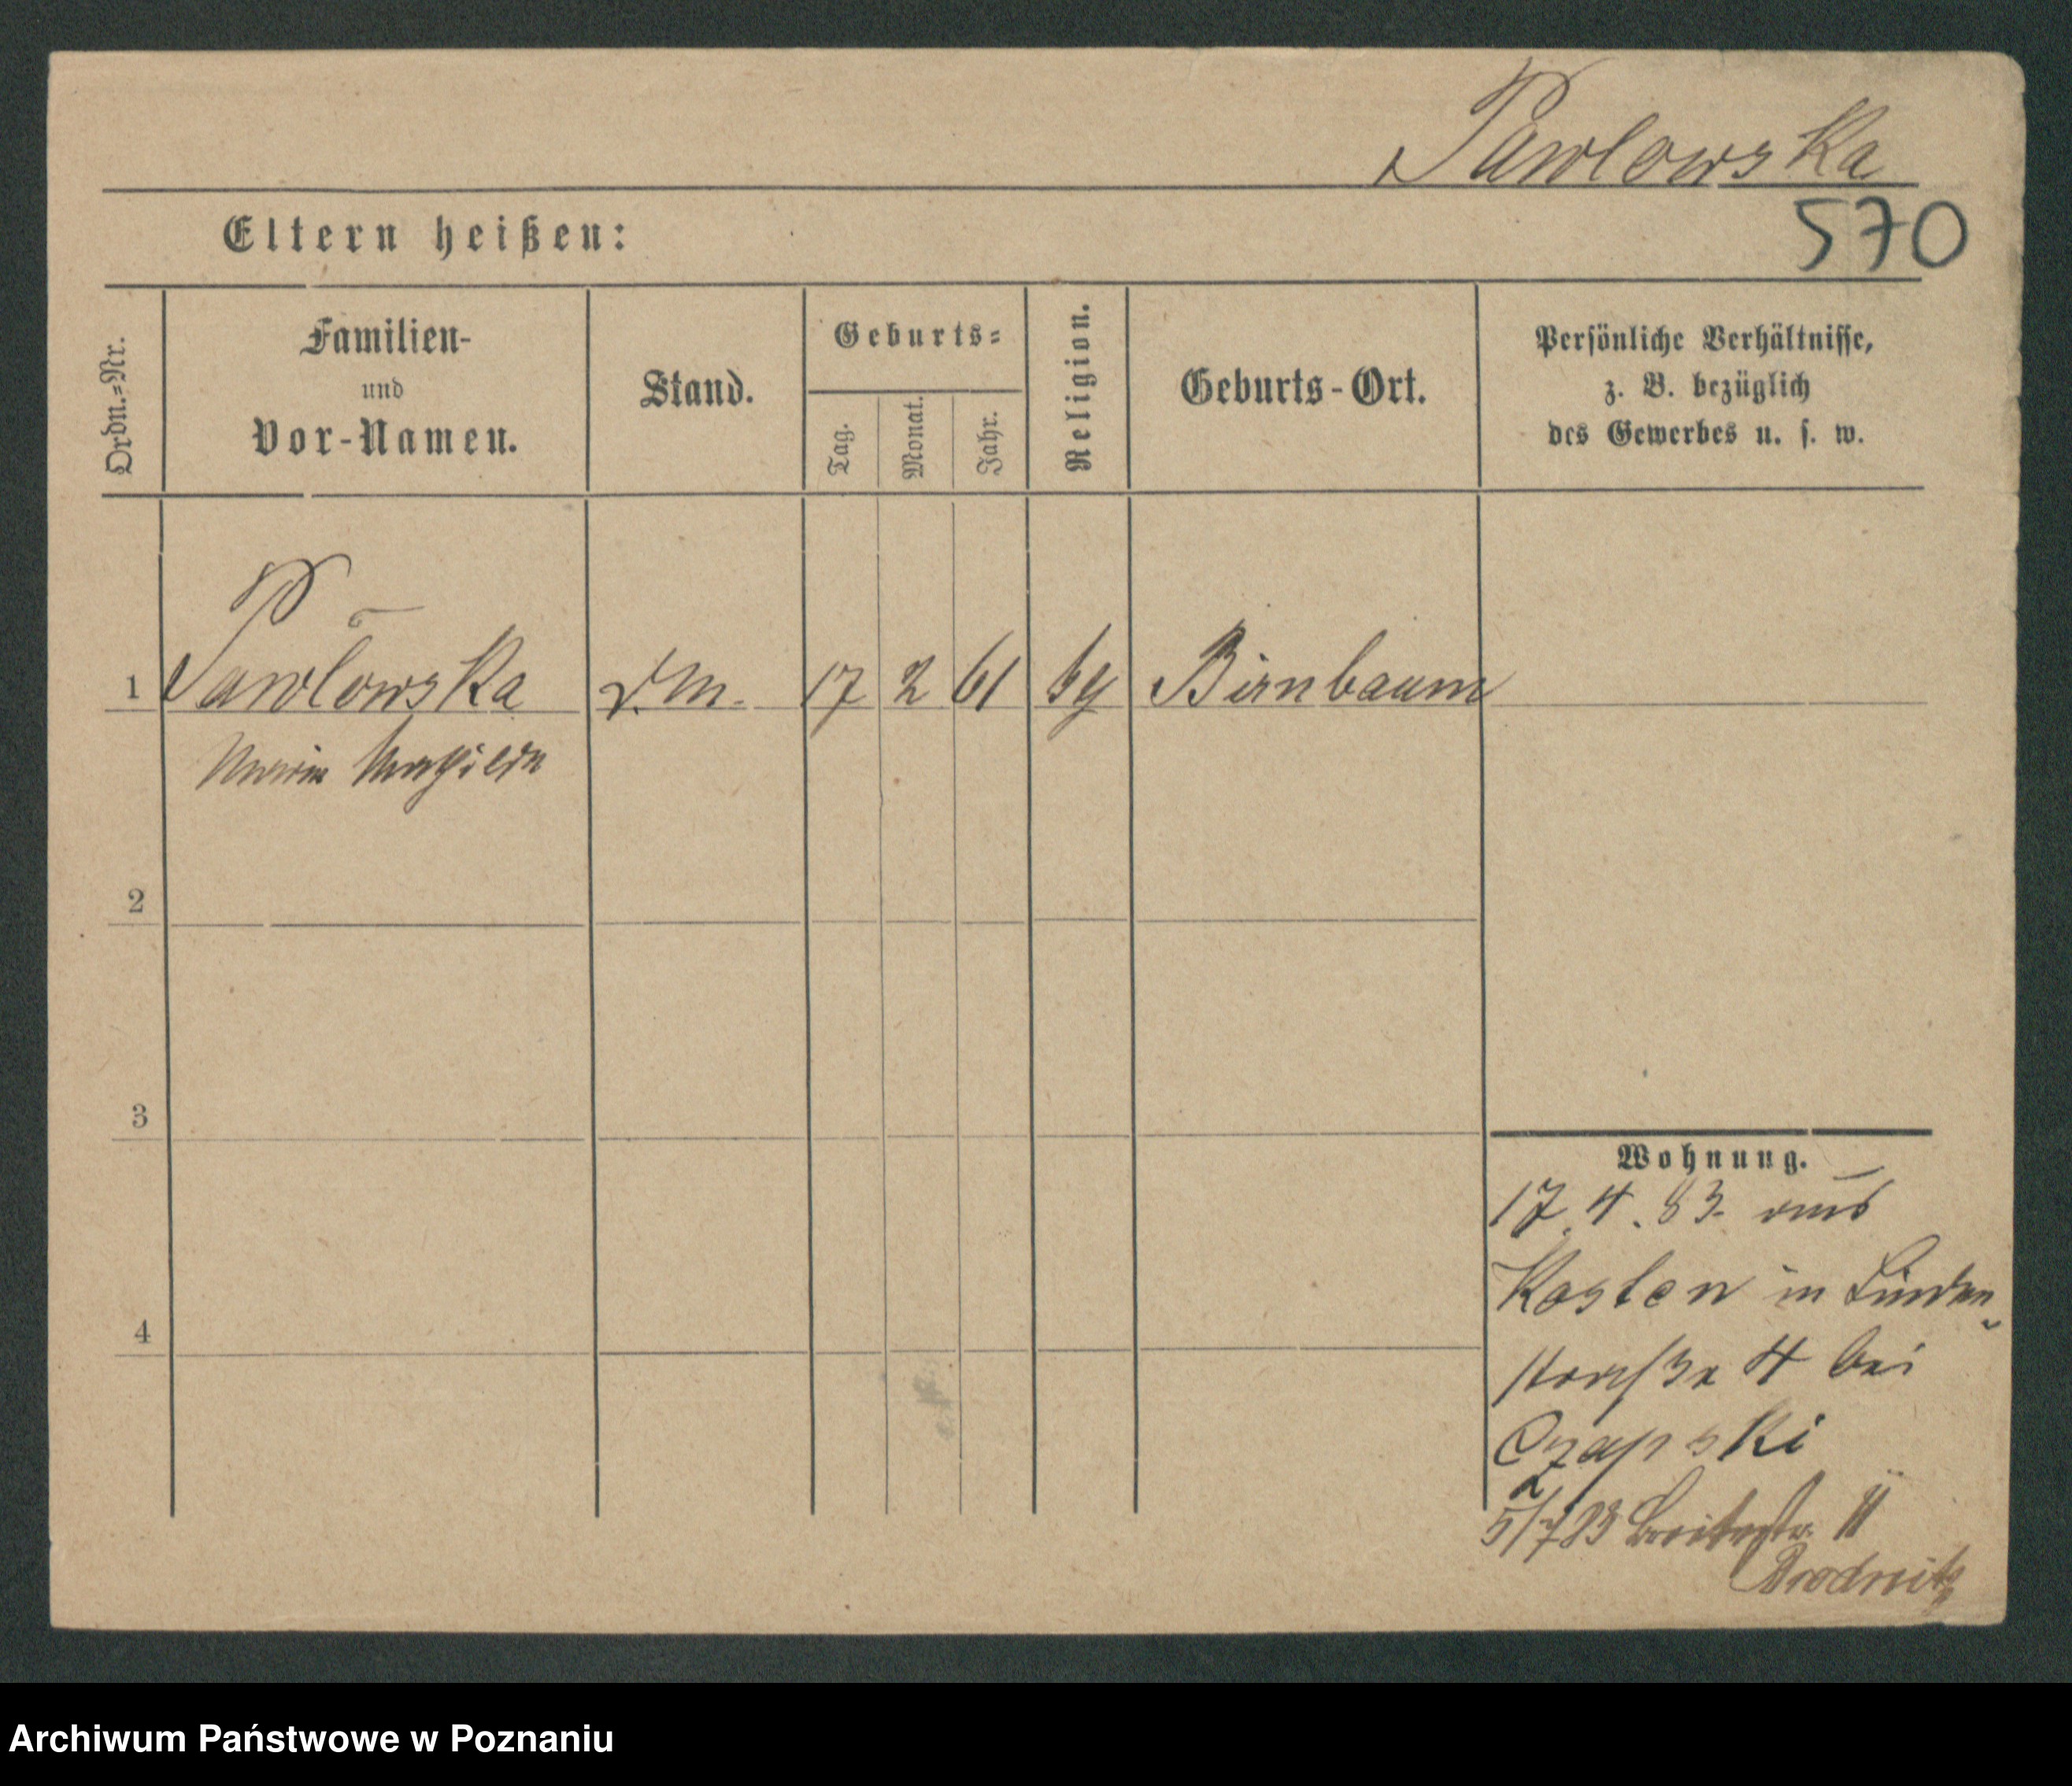 Pawlowska
570
Eltern heißen:
Ordn.=Nr.
Familien-
und
Vor-Namen.
Stand.
Geburts=
Tag.
Monat.
Jahr.
Religion.
Geburts-Ort.
Persönliche Verhältnisse,
z. B. bezüglich
des Gewerbes u. s. w.
1 Pawlowska D.M. 17 2 61 Birnbaum
Maria
2
3
4
Wohnung.
17.4.83. aus
Kosten in Linden
straße 4 bei
Czapski
5/7 83 Breitestr. 11
Brodnitz
Archiwum Państwowe w Poznaniu